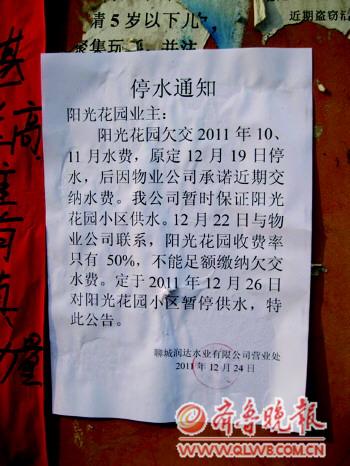 请5岁以下儿
聚集玩
并注
近期盗窃
高
停水通知
阳光花园业主：
阳光花园欠交2011年10、
11月水费，原定12月19日停
水，后因物业公司承诺近期交
纳水费。我公司暂时保证阳光
花园小区供水。12月22日与物
业公司联系，阳光花园收费率
只有50%，不能足额缴纳欠交
水费。定于2011年12月26日
对阳光花园小区暂停供水，特
此公告。
聊城润达水业有限公司营业处
2011年12月24日
齐鲁晚报
WWW.QLWB.COM.CN